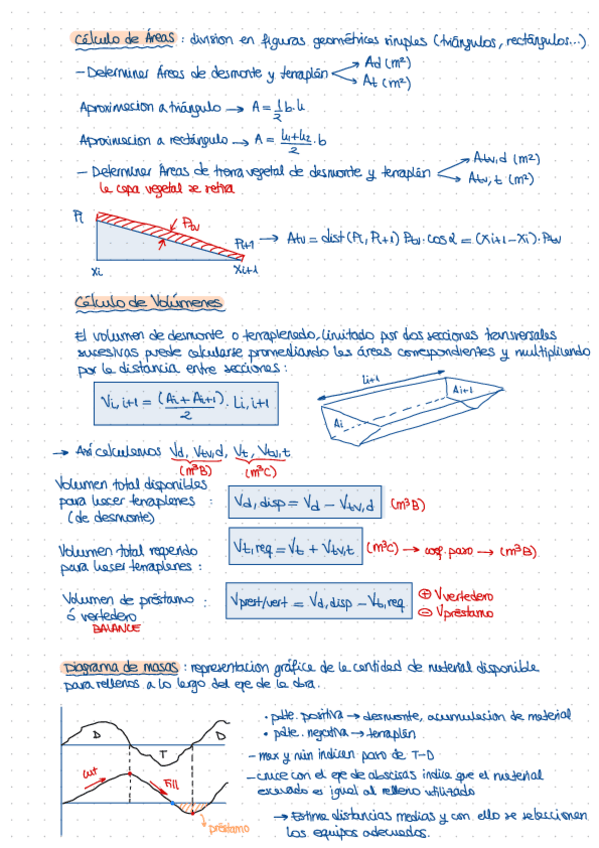 Cálculo de Áreas : division en figuras geométricas simples (triángulos, rectángulos...)
- Determinar Áreas de desmonte y terraplén Ad (m²)
At (m²)
Aproximacion a triángulo → A = 1/2 b·h
Aproximacion a rectángulo → A = (h1+h2)/2 · b
- Determinar Áreas de tierra vegetal de desmonte y terraplén Atv,d (m²)
Atv,t (m²)
la capa vegetal se retira
Pi
Ptv
Pi+1
→ Atv = dist (Pi, Pi+1) Ptv · cos α = (Xi+1 - Xi) · Ptv
Xi
Xi+1
Cálculo de Volúmenes
El volumen de desmonte o terraplenado, limitado por dos secciones transversales
sucesivas puede calcularse promediando las áreas correspondientes y multiplicando
por la distancia entre secciones :
Vi,i+1 = (Ai + Ai+1)/2 · Li,i+1
Li+1
Ai+1
Ai
→ Así calculamos Vd, Vtv,d, Vt, Vtv,t
(m³B) (m³C)
Volumen total disponibles
para hacer terraplenes :
(de desmonte)
Vd,disp = Vd - Vtv,d (m³B)
Volumen total requerido
para hacer terraplenes :
Vt,req = Vt + Vtv,t (m³C) → coef. paso → (m³B)
Volumen de préstamo :
ó vertedero
BALANCE
Vprest/vert = Vd,disp - Vt,req
⊕ Vvertedero
⊖ Vpréstamo
Diagrama de masas : representacion gráfica de la cantidad de material disponible
para rellenos a lo largo del eje de la obra.
D
T
D
cut
Fill
préstamo
• pdte. positiva → desmonte, acumulacion de material
• pdte. negativa → terraplén
- max y min indican paso de T-D
- cruce con el eje de abscisas indica que el material
excavado es igual al relleno utilizado
→ Estima distancias medias y con ello se seleccionan
los equipos adecuados.